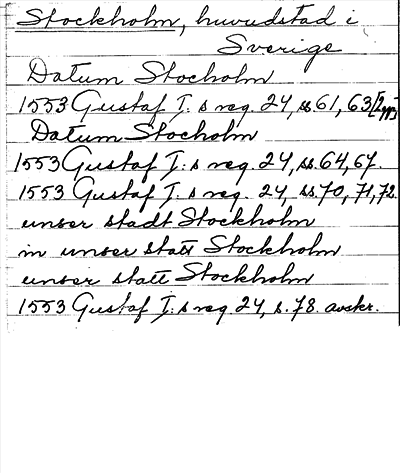 Stockholm, huvudstad i
Sverige
Datum Stocholm
1553 Gustaf I: s reg. 24, ss. 61, 63 [2 ggr]
Datum Stocholm
1553 Gustaf I: s reg. 24, ss. 64, 67.
1553 Gustaf I: s reg. 24, ss. 70, 71, 72.
unser stadt Stockholm
in unser statt Stockholm
unser statt Stockholm
1553 Gustaf I: s reg. 24, s. 78. avskr.